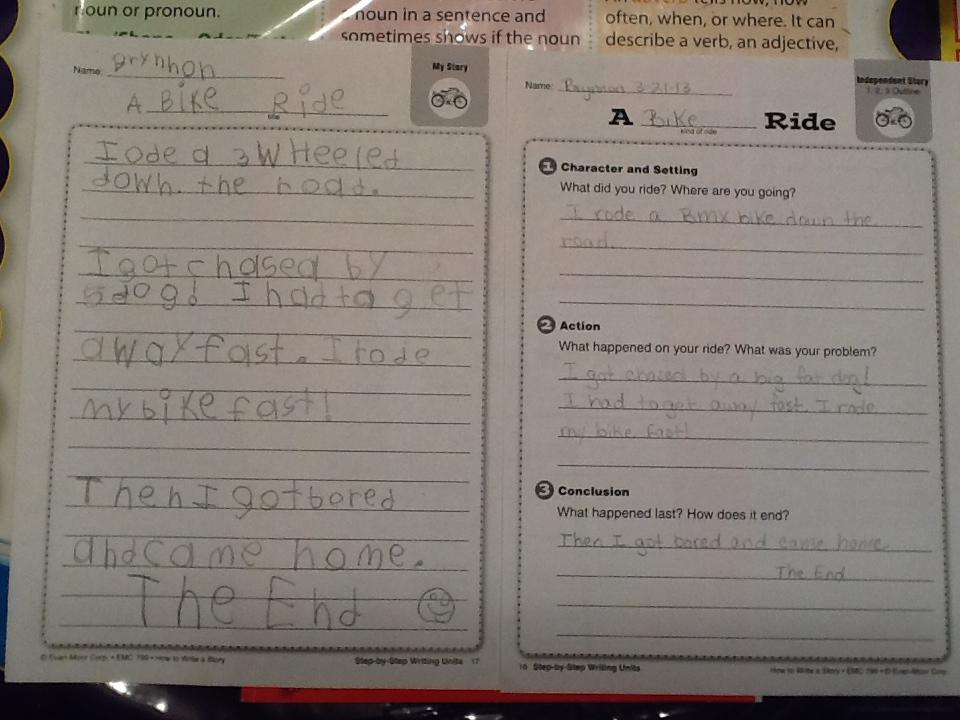 noun or pronoun.
noun in a sentence and
sometimes shows if the noun
often, when, or where. It can
describe a verb, an adjective,
Name: Brynnon
My Story
A Bike Ride
title
I ode a 3 WHeeled
down. the road.
I got chased by
dog! I had to get
away fast. I rode
my bike fast!
Then I got bored
and came home.
The End
© Evan-Moor Corp. • EMC 799 • How to Write a Story
Step-by-Step Writing Units 17
Name: Brynnon 3-21-13
Independent Story
1, 2, 3 Outline
A Bike Ride
kind of ride
1 Character and Setting
What did you ride? Where are you going?
I rode a Bmx bike down the
road.
2 Action
What happened on your ride? What was your problem?
I got chased by a big fat dog!
I had to get away fast. I rode
my bike fast!
3 Conclusion
What happened last? How does it end?
Then I got bored and came home.
The End
16 Step-by-Step Writing Units
How to Write a Story • EMC 799 • © Evan-Moor Corp.